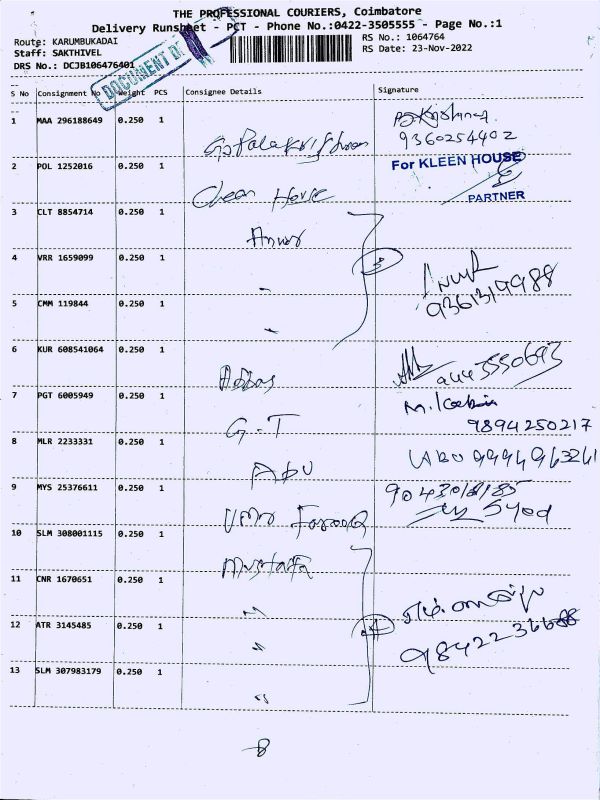 THE PROFESSIONAL COURIERS, Coimbatore
Delivery Runsheet - PCT - Phone No.:0422-3505555 - Page No.:1
Route: KARUMBUKADAI
RS No.: 1064764
Staff: SAKTHIVEL
RS Date: 23-Nov-2022
DRS No.: DCJB106476401
DOCUMENT
S No Consignment No Weight PCS Consignee Details Signature
1 MAA 296188649 0.250 1 Gopalakrishnan
9360254402
2 POL 1252016 0.250 1 Clean House
For KLEEN HOUSE
PARTNER
3 CLT 8854714 0.250 1 Anwar
4 VRR 1659099 0.250 1 "
3
9361319988
5 CMM 119844 0.250 1 "
6 KUR 608541064 0.250 1 Abbas
9443550693
7 PGT 6005949 0.250 1 G.T
9894250217
8 MLR 2233331 0.250 1 Abu
9 MYS 25376611 0.250 1 Umar Farooq
Syed
10 SLM 308001115 0.250 1 Mustafa
11 CNR 1670651 0.250 1 "
12 ATR 3145485 0.250 1 "
4
13 SLM 307983179 0.250 1 "
8